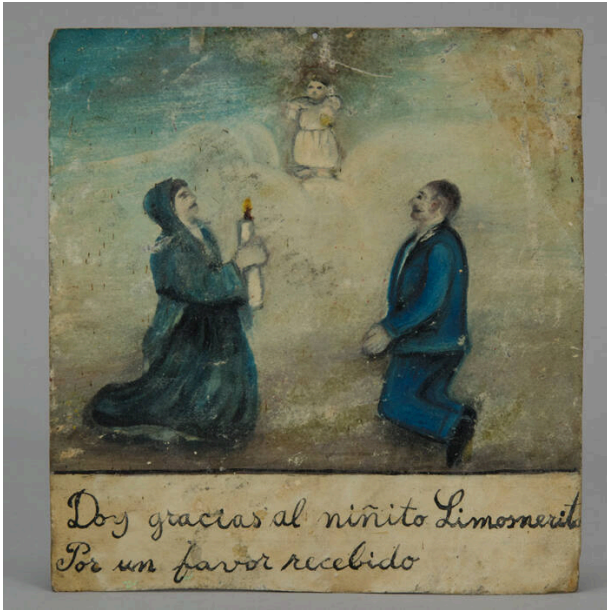 Doy gracias al niñito Limosnerito
Por un favor recebido